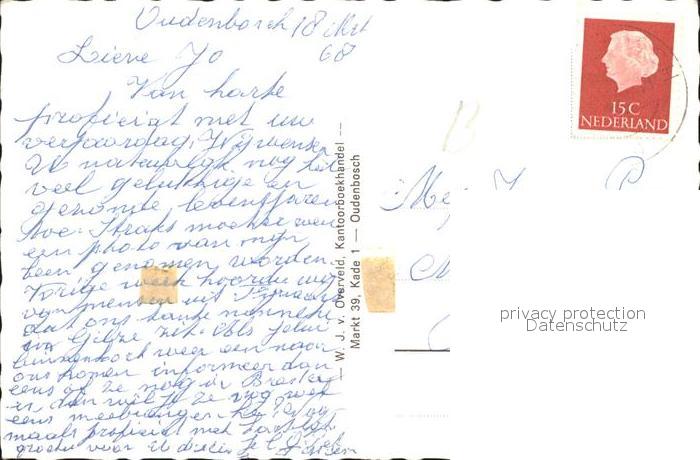 Oudenbosch 18 Mrt
68
Lieve Jo
Van harte
proficiat met uw
verjaardag, Wij wensen
U natuurlijk nog hét
veel gelukkige en
gezonde levensjaren
toe. Straks moeten we
een photo van mijn
been genomen worden
Vorige week hoorde wij
van mensen uit
dat ons tante nonneke
in Gilze zit. Als jelui
binnenkort weer een naar
ons komen informeer dan
eens of ze nog in Breda
is, dan wil je ze nog wel
eens meebrengen hé! nog
maals proficiat met hartelijke
groeten voor U
15 C
NEDERLAND
W. J. v. Overveld, Kantoorboekhandel
Markt 39, Kade 1 — Oudenbosch
Mej J P
privacy protection
Datenschutz